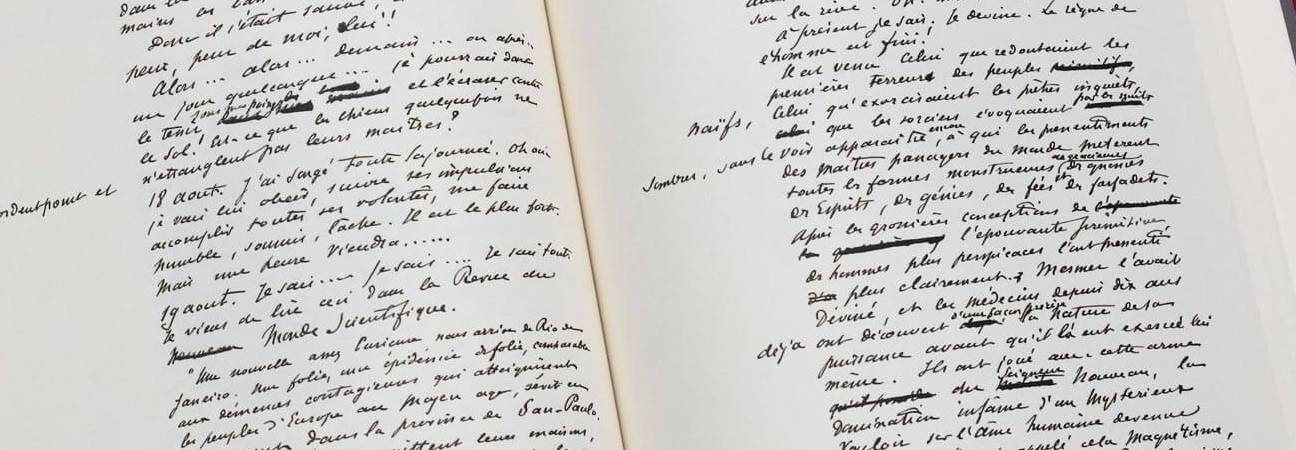 dans la
mains os
Donc il s'était sauvé,
peur, peur de moi, lui!
Alors... alors... demain... ou après..
un jour quelconque... je pourrai donc
le tenir sous mes poings et l'écraser contre
le sol! Est-ce que les chiens quelquefois ne
n'étranglent pas leurs maîtres?
18 août. J'ai songé toute la journée. Oh oui
je vais lui obéir, suivre ses impulsions
accomplir toutes ses volontés, me faire
humble, soumis, lâche. Il est le plus fort.
Mais une heure viendra......
19 août. Je sais... Je sais.... Je sais tout.
Je viens de lire ceci dans la Revue du
Nouveau Monde Scientifique.
"Une nouvelle assez curieuse nous arrive de Rio de
Janeiro. Une folie, une épidémie de folie, comparable
aux démences contagieuses qui atteignirent
les peuples d'Europe au Moyen age, sévit en
dans la province de San-Paulo.
leurs maisons,
ordent point et
sur la rive.
A présent je sais. Je devine. Le règne de
l'homme est fini!
Il est venu Celui que redoutaient les
premières terreurs des peuples primitifs,
naïfs, Celui qu'exorcisaient les prêtres inquiets,
celui que les sorciers évoquaient par les nuits
sombres, sans le voir apparaître encore, à qui les pressentiments
des maîtres passagers du monde prêtèrent
toutes les formes monstrueuses ou gracieuses des gnomes
des Esprits, des génies, des fées et des farfadets.
Après les grossières conceptions de l'épouvante
l'épouvante primitive
des hommes plus perspicaces l'ont pressenti
plus clairement. Mesmer l'avait
Deviné, et les médecins depuis dix ans
déjà ont découvert d'une façon précise la nature de sa
puissance avant qu'il l'a eut exercée lui
même. Ils ont joué avec cette arme
du Seigneur Nouveau, la
Domination infâme d'un mystérieux
vouloir sur l'âme humaine devenue
appelé cela Magnétisme,